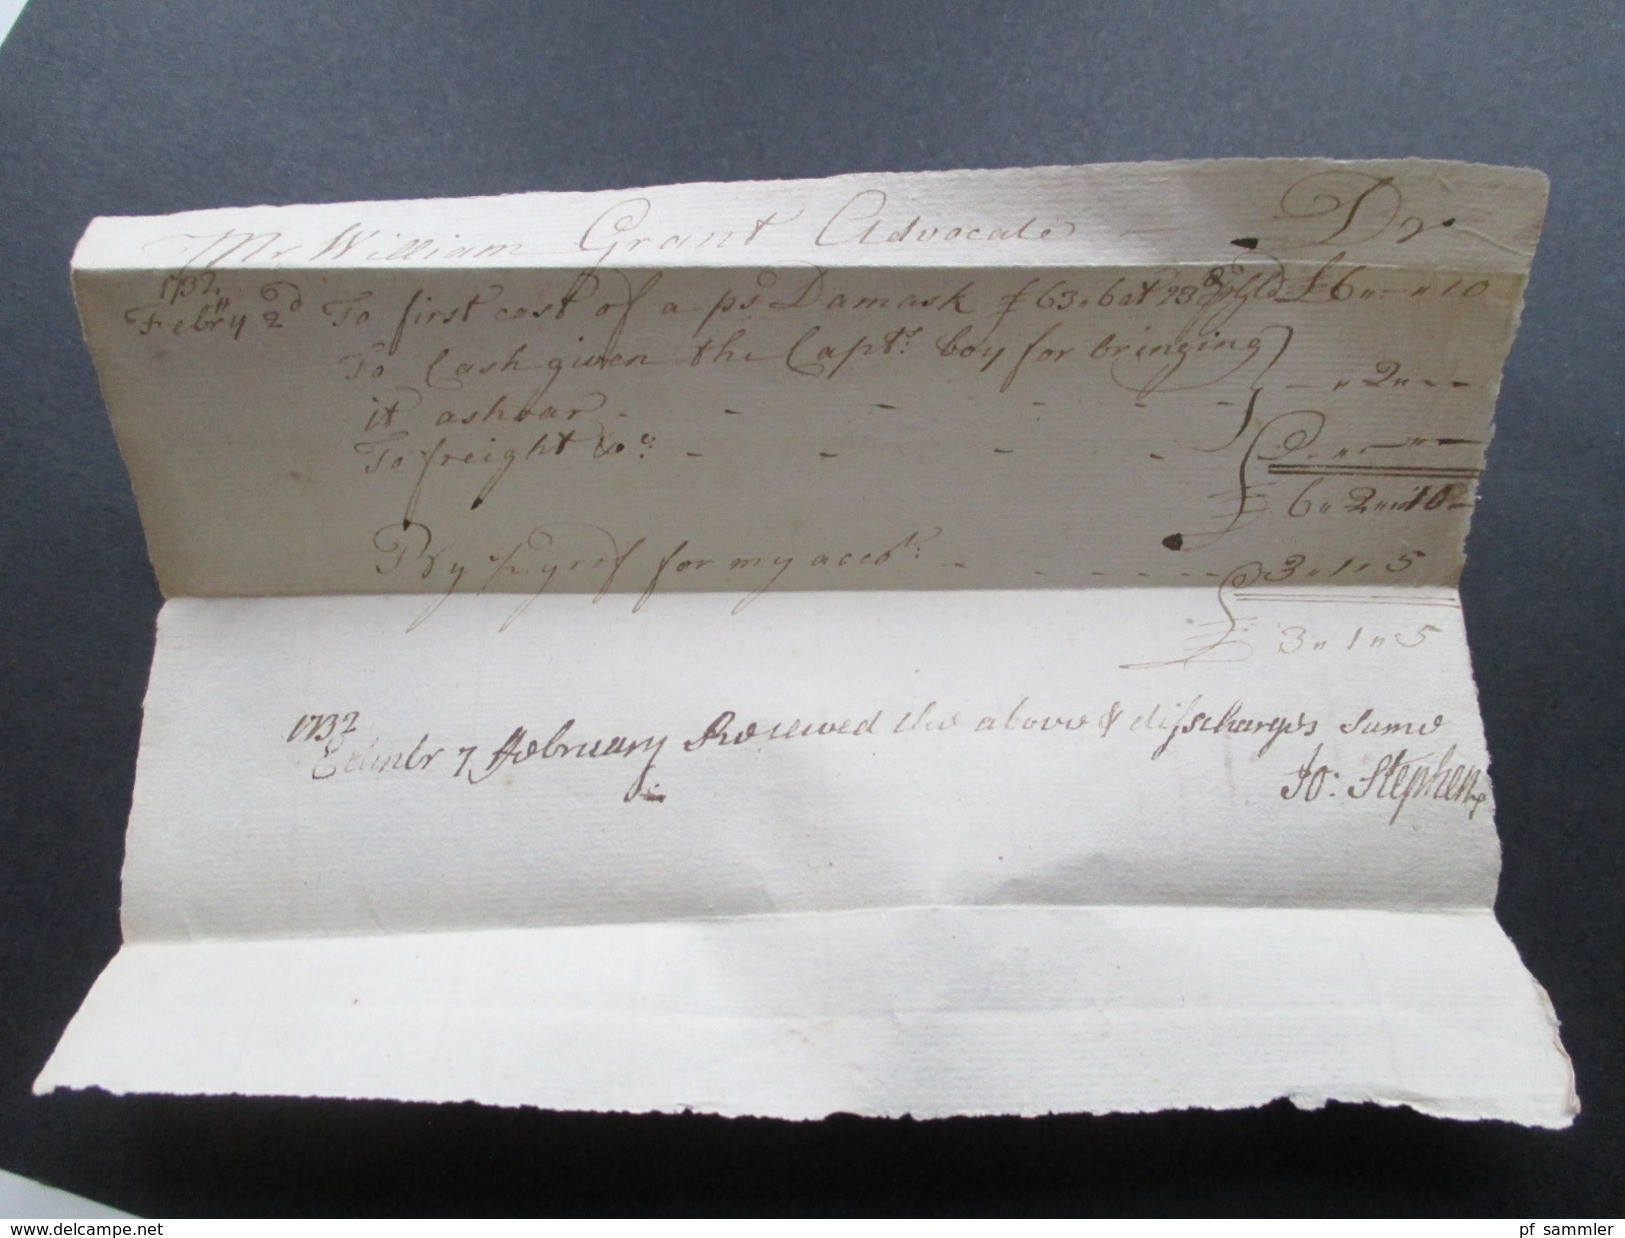 Mr William Grant Advocate — Dr
1732
Febry 2d To first cost of a ps Damask £ 63.6 at 23 £6 " — " 10
To Cash given the Capts: boy for bringing
it ashoar - - - - - - — " 2 " - -
To freight &c: - - - -
£ 6 " 2 " 10
By for my acco - - - - - 3 " 1 " 5
£ 3 " 1 " 5
1732
Edinbr 7 ffebruary Receiwed the above & disscharges same
Jo: Stephen
www.delcampe.net
pf_sammler